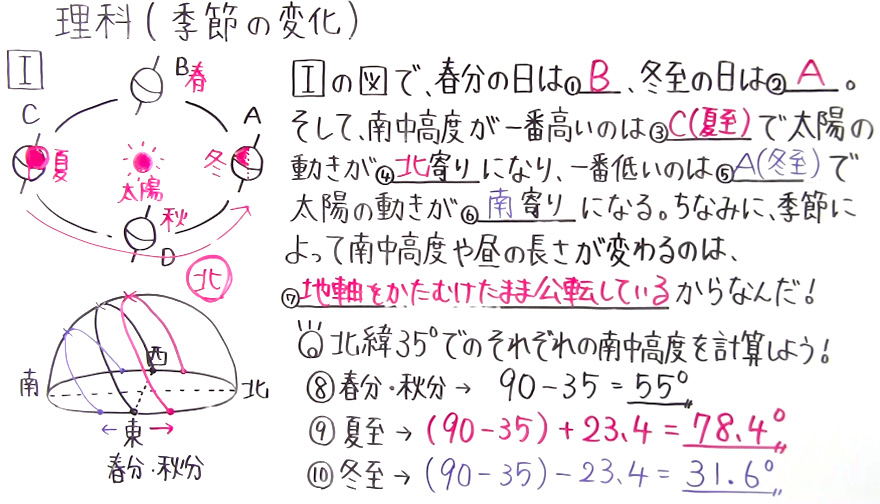 理科(季節の変化)
I
B
春
C
A
夏
冬
太陽
秋
D
北
南
西
北
← 東 →
春分・秋分
Iの図で、春分の日は①B、冬至の日は②A。
そして、南中高度が一番高いのは③C(夏至)で太陽の
動きが④北寄りになり、一番低いのは⑤A(冬至)で
太陽の動きが⑥南寄りになる。ちなみに、季節に
よって南中高度や昼の長さが変わるのは、
⑦地軸をかたむけたまま公転しているからなんだ!
北緯35°でのそれぞれの南中高度を計算しよう!
⑧春分・秋分→ 90-35=55°
⑨夏至→(90-35)+23.4=78.4°
⑩冬至→(90-35)-23.4=31.6°